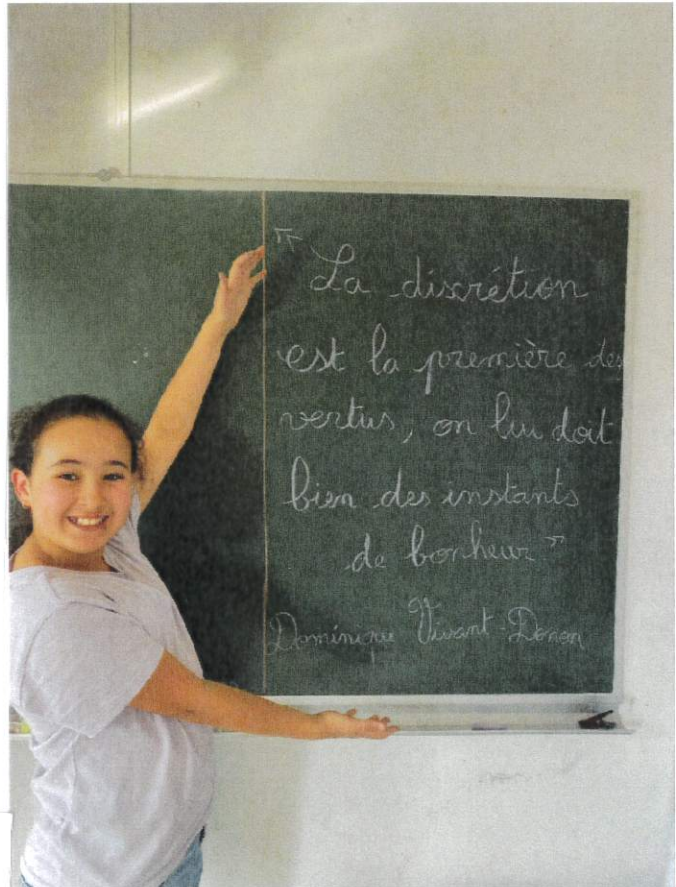 " La discrétion
est la première des
vertus, on lui doit
bien des instants
de bonheur "
Dominique Vivant Denon